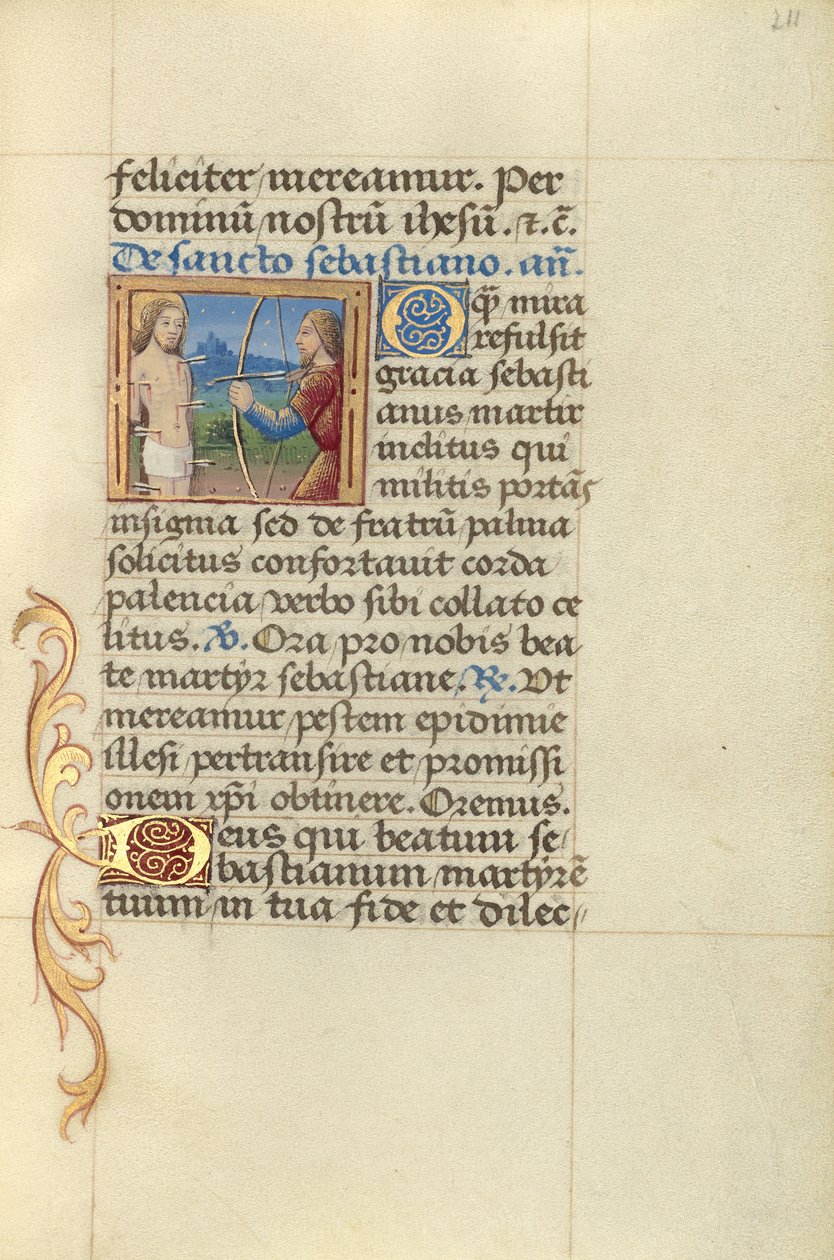 211
feliciter mereamur. Per
dominū nostrū ihesū. ⁊.c̄.
De sancto sebastiano. an̄.
O q̄ mira
refulsit
gracia sebasti
anus martir
inclitus qui
militis portās
insignia sed de fratrū palma
solicitus confortauit corda
palencia verbo sibi collato ce
litus. ℣. Ora pro nobis bea
te martyr sebastiane. ℟. Vt
mereamur pestem epidimie
illesi pertransire et promissi
onem xp̄i obtinere. Oremus.
Deus qui beatum se
bastianum martyrē
tuum in tua fide et dilec